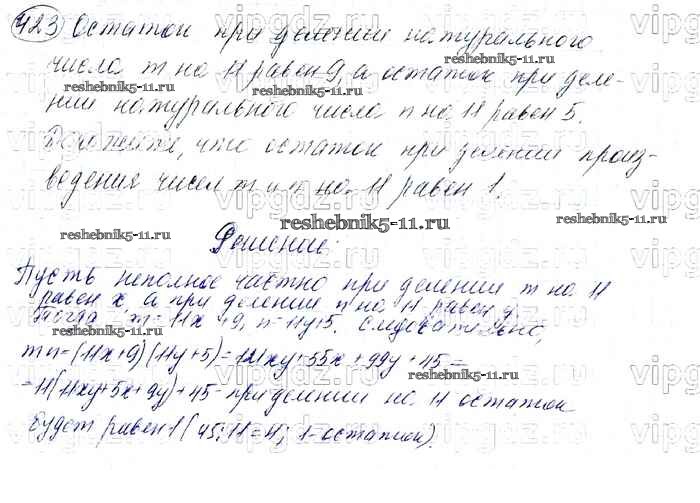 423) Остаток при делении натурального
числа m на 11 равен 9, а остаток при деле-
нии натурального числа n на 11 равен 5.
Докажите, что остаток при делении произ-
ведения чисел m и n на 11 равен 1.
Решение:
Пусть неполное частно при делении m на 11
равен x, а при делении n на 11 равен y.
Тогда m = 11x + 9, n = 11y+5. Следовательно,
mn = (11x+9)(11y+5) = 121xy + 55x + 99y + 45 =
= 11(11xy+5x+9y)+45 - при делении на 11 остаток
будет равен 1 (45:11=4; 1-остаток).
reshebnik5-11.ru
reshebnik5-11.ru
reshebnik5-11.ru
reshebnik5-11.ru
reshebnik5-11.ru
vipgdz.ru